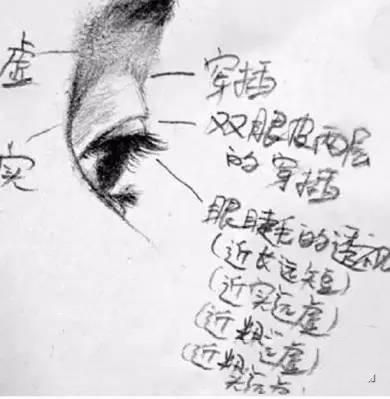 虚
穿插
双眼皮两层
的穿插
实
眼睫毛的透视
(近长远短)
(近实远虚)
(近粗
(近粗远虚)